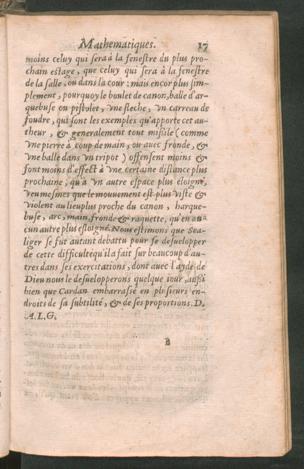 Mathematiques. 17
moins celuy qui sera à la fenestre du plus pro-
chain estage, que celuy qui sera à la fenestre
de la salle, ou dans la cour : mais encor plus sim-
plement, pourquoy le boulet de canon, balle d'ar-
quebuse ou pistolet, vne flesche, vn carreau de
foudre, qui sont les exemples qu'apporte cet au-
theur, & generalement tout misile (comme
vne pierre à coup de main, ou auec fronde, &
vne balle dans vn tripot) offensent moins &
font moins d'effect à vne certaine distance plus
prochaine, qu'à vn autre espace plus eloigné,
veu mesmes que le mouuement est plus viste &
violent au lieu plus proche du canon, harque-
buse, arc, main, fronde & raquette, qu'en au-
cun autre plus esloigné. Nous estimons que Sca-
liger se fut autant debattu pour se desuelopper
de cette difficulté qu'il a fait sur beaucoup d'au-
tres dans ses exercitations, dont auec l'ayde de
Dieu nous le desuelopperons quelque iour, aussi
bien que Cardan embarrassé en plusieurs en-
droits de sa subtilité, & de ses proportions. D.
A. L. G.
B